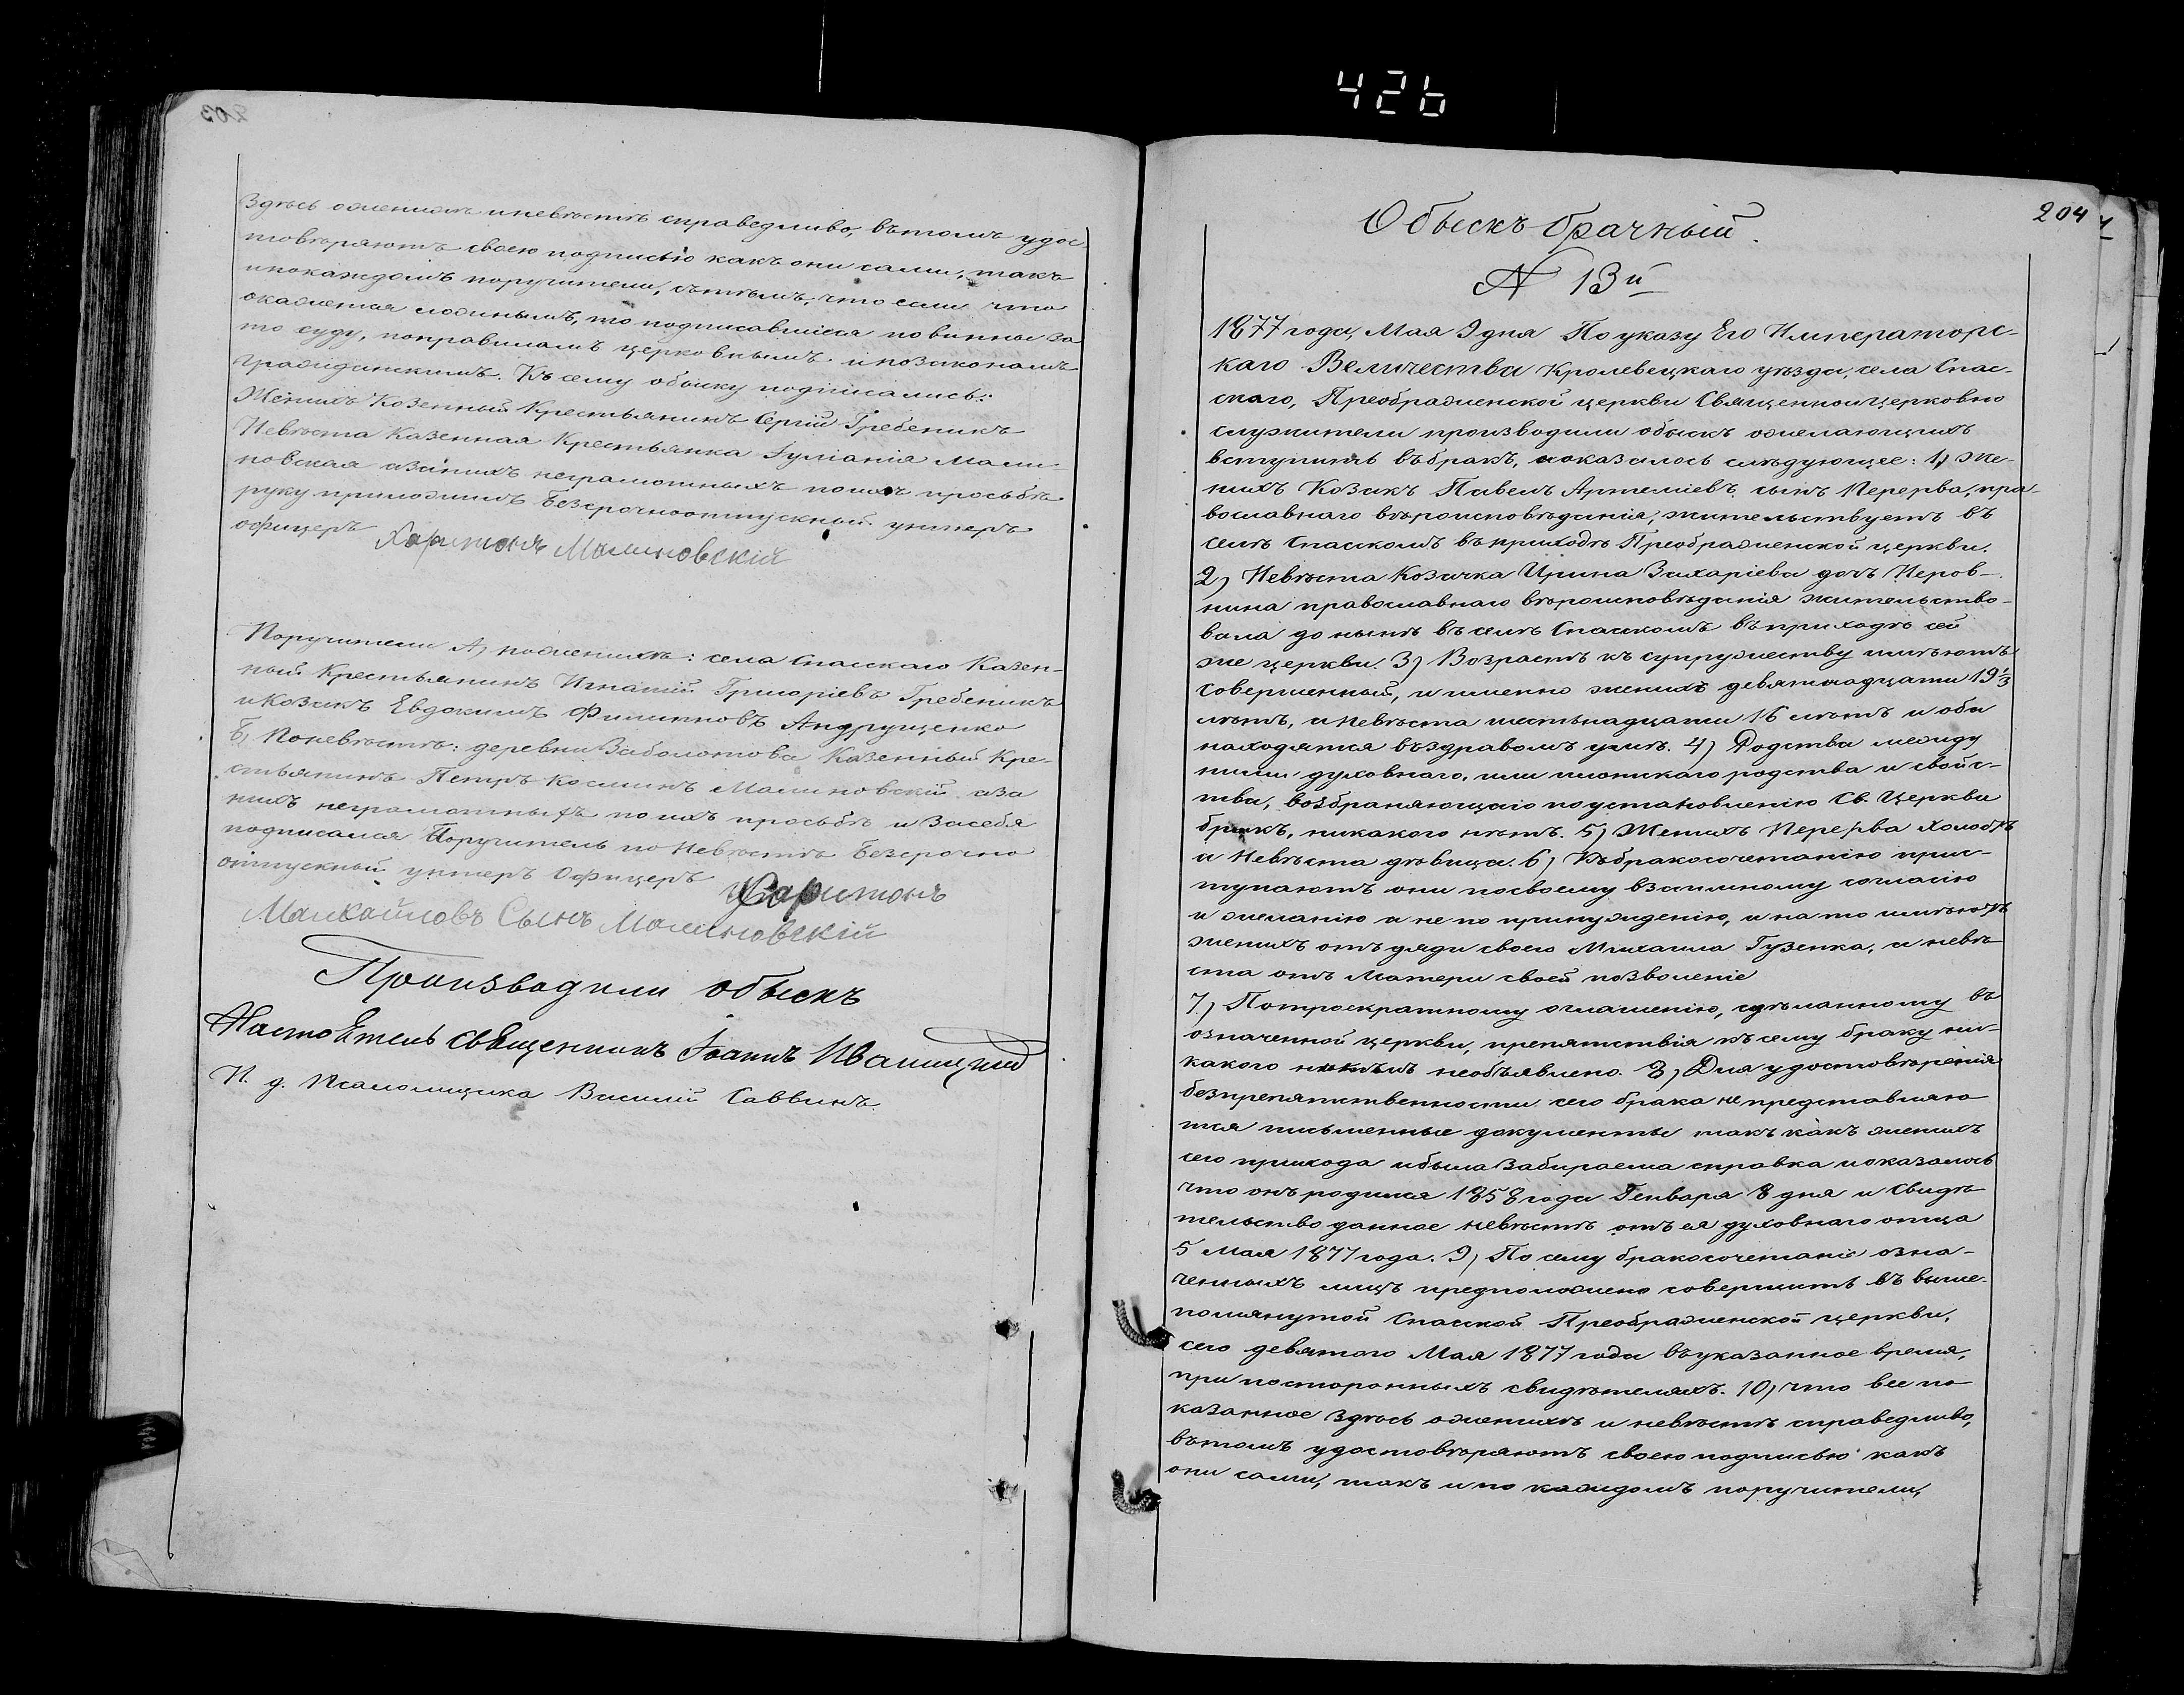 426
203
здѣсь о женихѣ и невѣстѣ справедливо, въ томъ удос-
товѣряютъ своею подписью какъ они сами, такъ
и по каждомъ поручители, съ тѣмъ, что если что
окажется ложнымъ, то подписавшіеся повинны за
то суду, по правиламъ церковнымъ и по законамъ
гражданскимъ. Къ сему обыску подписались:
Женихъ Козенный Крестьянинъ Сергій Гребеникъ
Невѣста Казенная Крестьянка Іуліанія Мали-
новская а за нихъ неграмотныхъ по ихъ просьбѣ
руку приложилъ Безсрочноотпускный унтеръ
офицеръ Харитонъ Малиновскій
Поручители А) по женихѣ: села Спасскаго Казен-
ный Крестьянинъ Игнатій Григоріевъ Гребеникъ
и Козакъ Евдокимъ Филипповъ Андрущенко
Б) По невѣстѣ: деревни Заболотова Казенный Кре-
стьянинъ Петръ Косминъ Малиновскій а за
нихъ неграмотныхъ по ихъ просьбѣ и За себя
подписался Поручитель по Невѣстѣ Безсрочно
отпускный унтеръ Офицеръ Харитонъ
Сынъ Малиновскій
Производили обыскъ
Настоятель священникъ Іоаннъ
И. д. Псаломщика Василій Саввинъ.
204
Обыскъ брачный.
№ 13й
1877 года, Мая 9 дня По указу Его Император-
скаго Величества Кролевецкаго уѣзда, села Спас-
скаго, Преображенской церкви Священноицерковно
служители производили обыскъ о желающихъ
вступить въ бракъ, и оказалось слѣдующее: 1) Же-
нихъ Козакъ Павелъ Артеміевъ сынъ Перерва, пра-
вославнаго вѣроисповѣданія, жительствуетъ въ
селѣ Спасскомъ въ приходѣ Преображенской церкви.
2) Невѣста Козачка Ирина Захаріева дочь Неров-
нина православнаго вѣроисповѣданія жительство-
вала до нынѣ въ селѣ Спасскомъ въ приходѣ сей
же церкви. 3) Возрастъ къ супружеству имѣютъ
совершенный, и именно женихъ девятнадцати 19⅓
лѣтъ, а невѣста шестьнадцати 16 лѣтъ и оба
находятся въ здравомъ умѣ. 4) Родства между
ними духовнаго, или плотскаго родства и свойс-
тва, возбраняющаго по установленію Св. Церкви
бракъ, никакого нѣтъ. 5) Женихъ Перерва холостъ
а Невѣста дѣвица. 6) Къ бракосочетанію прис-
тупаютъ они по своему взаимному согласію
и желанію а не по принужденію, и на то имѣютъ
женихъ отъ дяди своего Михаила Гузенка, а невѣ-
ста отъ Матери своей позволеніе
7.) По троекратному оглашенію, сдѣланному въ
означенной церкви, препятствія къ сему браку ни-
какого никѣмъ необъявлено. 8) Для удостовѣренія
безпрепятственности сего брака не представляю
тся письменные документы такъ какъ женихъ
сего прихода и была забираема справка и оказалось
что онъ родился 1858 года Генваря 8 дня и Свидѣ-
тельство данное невѣстѣ отъ ея духовнаго отца
5 Мая 1877 года. 9) По сему бракосочетаніе озна-
ченныхъ лицъ предположено совершить въ выше-
помянутой Спасской Преображенской церкви,
сего девятого Мая 1877 года въ указанное время,
при постороннихъ свидѣтеляхъ. 10) что все по
казанное здѣсь о женихѣ и невѣстѣ справедливо,
въ томъ удостовѣряютъ своею подписью какъ
они сами, такъ и по каждомъ поручители,